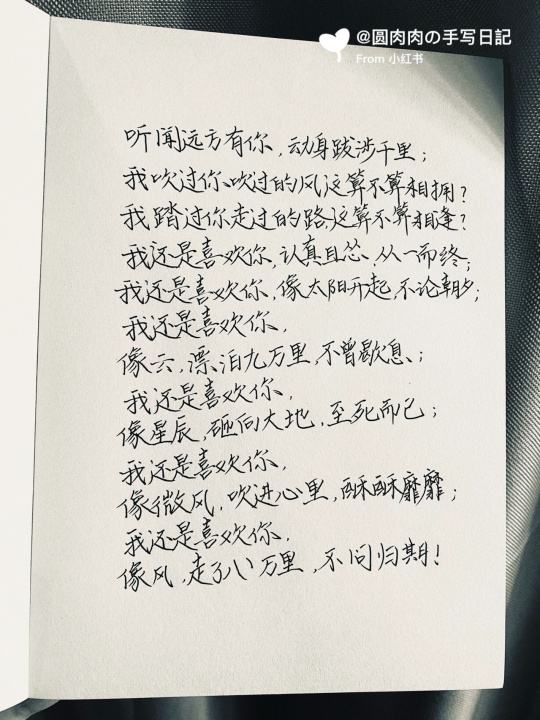 @圆肉肉の手写日記
From 小红书
听闻远方有你，动身跋涉千里；
我吹过你吹过的风，这算不算相拥？
我踏过你走过的路，这算不算相逢？
我还是喜欢你，认真且怂，从一而终；
我还是喜欢你，像太阳升起，不论朝夕；
我还是喜欢你，
像云，漂泊九万里，不曾歇息；
我还是喜欢你，
像星辰，砸向大地，至死而已；
我还是喜欢你，
像微风，吹进心里，酥酥靡靡；
我还是喜欢你，
像风，走了八万里，不问归期！